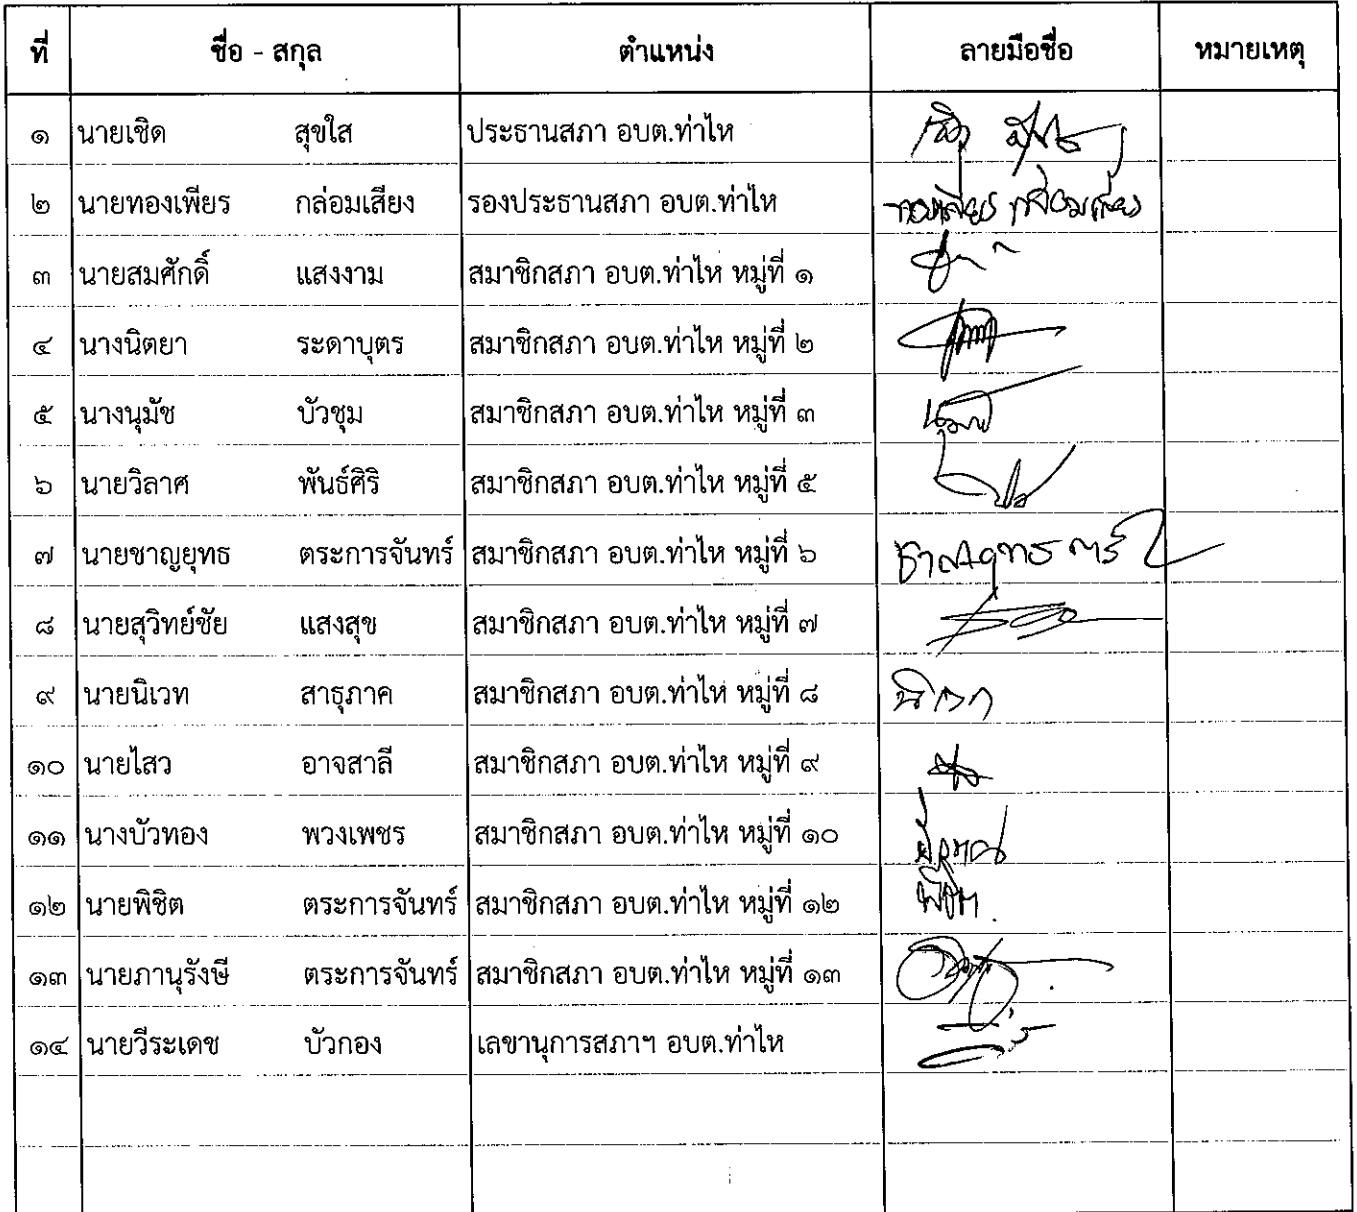 ที่ ชื่อ - สกุล ตำแหน่ง ลายมือชื่อ หมายเหตุ
๑ นายเชิด สุขใส ประธานสภา อบต.ท่าไห
๒ นายทองเพียร กล่อมเสียง รองประธานสภา อบต.ท่าไห ทองเพียร กล่อมเสียง
๓ นายสมศักดิ์ แสงงาม สมาชิกสภา อบต.ท่าไห หมู่ที่ ๑
๔ นางนิตยา ระดาบุตร สมาชิกสภา อบต.ท่าไห หมู่ที่ ๒
๕ นางนุมัช บัวชุม สมาชิกสภา อบต.ท่าไห หมู่ที่ ๓
๖ นายวิลาศ พันธ์ศิริ สมาชิกสภา อบต.ท่าไห หมู่ที่ ๕
๗ นายชาญยุทธ ตระการจันทร์ สมาชิกสภา อบต.ท่าไห หมู่ที่ ๖ ชาญยุทธ
๘ นายสุวิทย์ชัย แสงสุข สมาชิกสภา อบต.ท่าไห หมู่ที่ ๗
๙ นายนิเวท สาธุภาค สมาชิกสภา อบต.ท่าไห หมู่ที่ ๘
๑๐ นายไสว อาจสาลี สมาชิกสภา อบต.ท่าไห หมู่ที่ ๙
๑๑ นางบัวทอง พวงเพชร สมาชิกสภา อบต.ท่าไห หมู่ที่ ๑๐
๑๒ นายพิชิต ตระการจันทร์ สมาชิกสภา อบต.ท่าไห หมู่ที่ ๑๒ พิชิต
๑๓ นายภานุรังษี ตระการจันทร์ สมาชิกสภา อบต.ท่าไห หมู่ที่ ๑๓
๑๔ นายวีระเดช บัวกอง เลขานุการสภาฯ อบต.ท่าไห